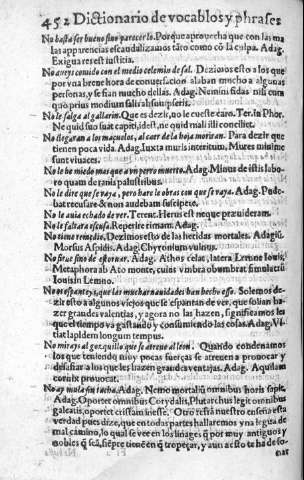 452 Dictionario de vocablos y phrases
No basta ser bueno sino parecerlo. Porque aprovecha que con las ma
las apparencias escandalizamos tãto como cõ la culpa. Adag.
Exigua res est iustitia.
No aveys comido con el medio celemin de sal. Dezimos esto a los que
por vna breve hora de conversacion alaban mucho a algunas
personas, y se fian mucho dellas. Adag. Nemini fidas nisi cum
quo prius modium salis
No le salga al gallarin. Que es dezir, no le cueste caro. Ter. in Phor.
Ne quid suo suat capiti, ne quid mali illi conciliet.
No llegaran a los maguelos, al caer de la hoja moriran. Para dezir que
tienen poca vida. Adag. Iuxta muris interitum, Mures minime
sunt vivaces.
No le he miedo mas que a vn perro muerto. Adag. Minus de istis labo
ro quam de ranis palustribus.
No le dire que se vaya, pero hare le obras con que se vaya. Adag. Pude-
bat recusare & non audebam suscipere.
No le avia echado de ver. Terent. Herus est neque prævideram.
No le faltara escusa. Reperire rimam. Adag.
No tiene remedio. Dezimos esto de las heridas mortales. Adagiũ.
Morsus Aspidis. Adag. Chyronium vulnus.
No sirue sino de estorvar. Adag. Athos celat, latera Lemniæ bouis,
Metaphora ab Ato monte, cuius vmbra obumbrat simulacrũ
in Lemno.
No os espanteys, que los muchos años le han hecho esso. Solemos de-
zir esto a algunos viejos que se espantan de ver, que solian ha-
zer grandes valentias, y agora no las hazen, significamos les
que el tiempo va gastando y consumiendo las cosas. Adag. Vi-
tiat lapidem longum tempus.
No mireys al gorguillo que se atreve al leon. Quando condenamos
los que teniendo muy pocas fuerças se atreuen a prouocar y
desafiar a los que les hazen grandes ventajas. Adag. Aquilam
cornix prouocat.
No ay mula sin tacha. Adag. Nemo mortaliũ omnibus horis sapit.
Adag. Oportet omnibus Corydalis, Plutarchus legit omnibus
galeatis, oportet cristam inesse. Otro refrã nuestro enseña esta
verdad pues dize, que en todas partes hallaremos vna legua de
mal camino, lo qual se ver en los linages, q̃ por muy antiguos y
nobles q̃ seã, siẽpre tienen en q̃ tropeçar, y aun acaso te ha de so
nar